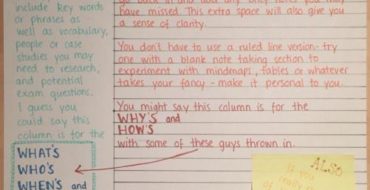 include key words
or phrases - as
well as vocabulary,
people or case
studies you may
need to research,
and potential
exam questions.
I guess you
could say this
column is for the
WHAT'S
WHO'S
WHEN'S and
have missed. This extra space will also give you
a sense of clarity.
You don't have to use a ruled line version - try
one with a blank note taking section to
experiment with mindmaps, fables or whatever
takes your fancy - make it personal to you.
You might say this column is for the
WHY'S and
HOW'S
with some of these guys thrown in.
ALSO